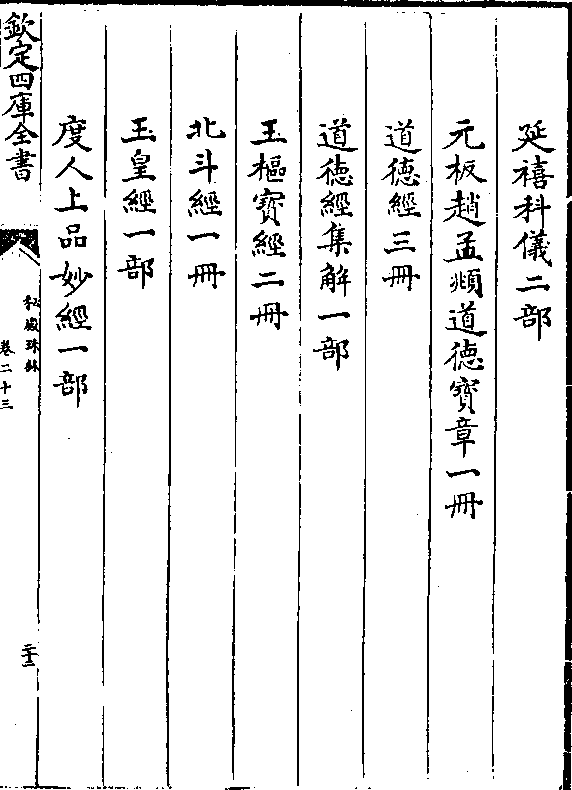 延禧科儀二部
元板趙孟頫道德寶章一冊
道德經三冊
道德經集解一部
玉樞寶經二冊
北斗經一冊
玉皇經一部
度人上品妙經一部
欽定四庫全書
秘殿珠林
卷二十三